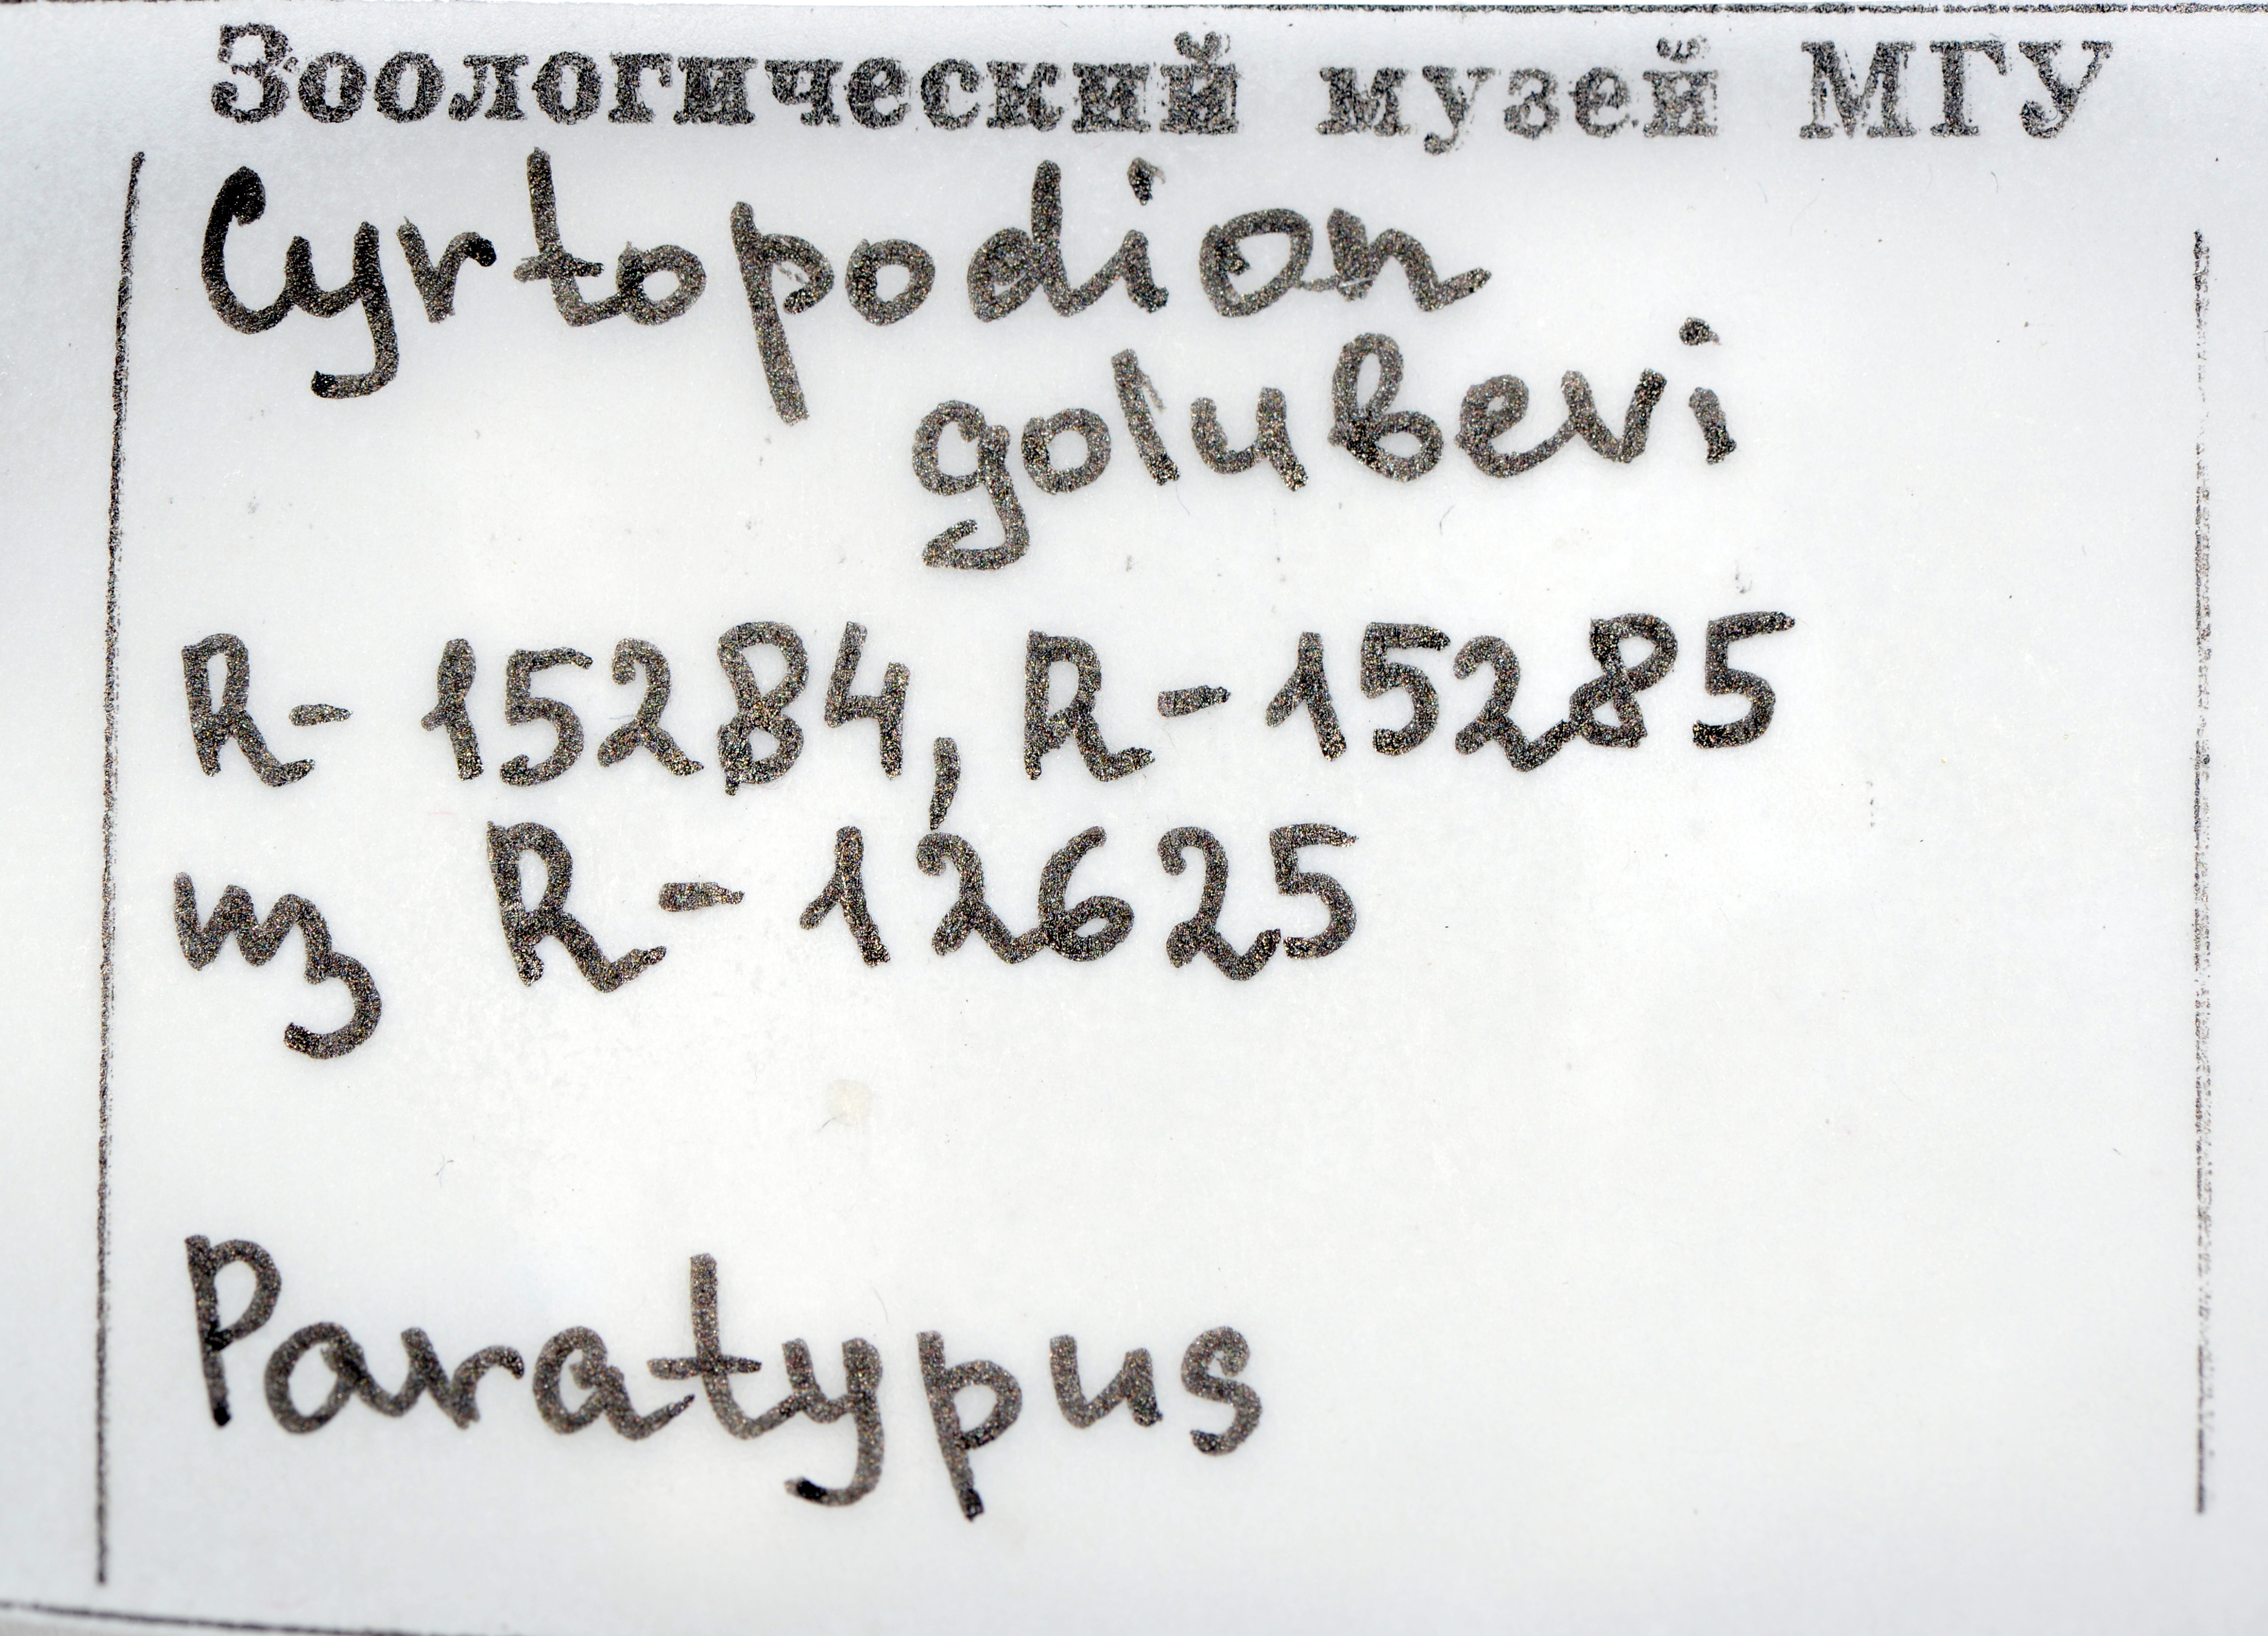 Зоологический музей МГУ
Cyrtopodion
golubevi
R- 15284, R-15285
из R-12625
Paratypus